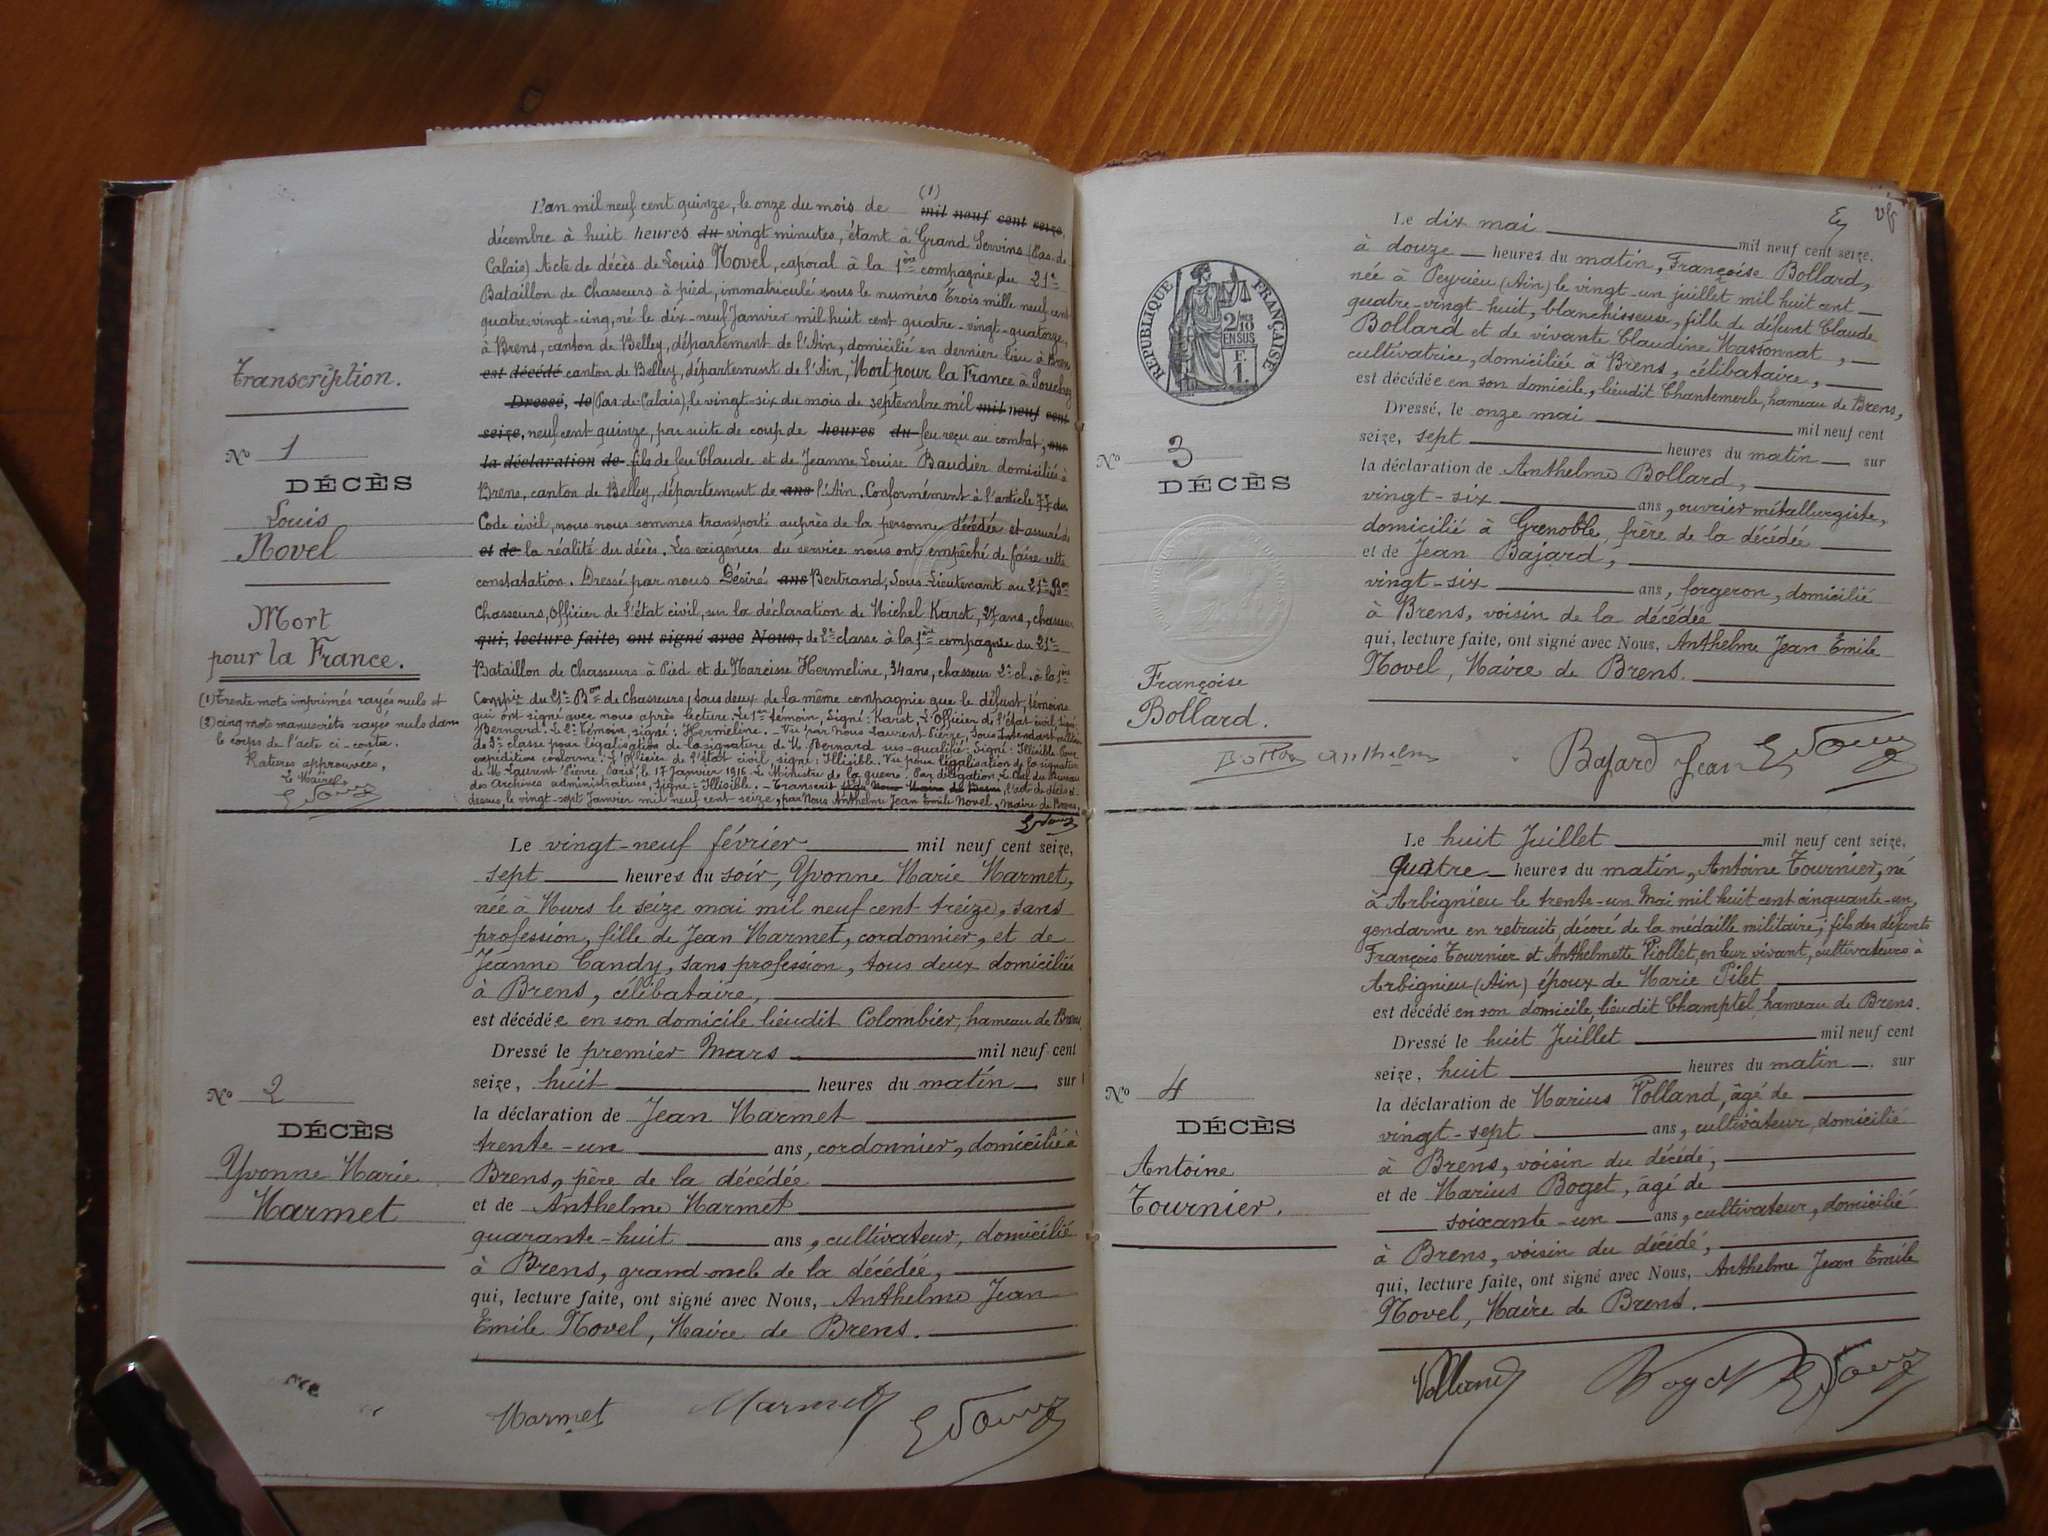 Transcription.
Nº 1
DÉCÈS
Louis
Novel
Mort
pour la France.
(1) Trente mots imprimés rayés nuls et
(2) cinq mots manuscrits rayés nuls dans
le corps de l'acte ci-contre.
Ratures approuvées,
Le Maire,
(1)
L'an mil neuf cent quinze, le onze du mois de mil neuf cent seize,
décembre à huit heures du vingt minutes, étant à Grand Servins (Pas-de-
Calais) Acte de décès de Louis Novel, caporal à la 1ère compagnie du 21e
Bataillon de Chasseurs à pied, immatriculé sous le numéro Trois mille neuf cent
quatre-vingt-cinq, né le dix-neuf Janvier mil huit cent quatre-vingt-quatorze,
à Brens, canton de Belley, département de l'Ain, domicilié en dernier lieu à Brens
est décédé canton de Belley, département de l'Ain, Mort pour la France à Souchez
Dressé, le (Pas-de-Calais), le vingt-six du mois de septembre mil mil neuf cent
seize, neuf cent quinze, par suite de coup de heures du feu reçu au combat, sur
la déclaration de fils de feu Claude et de Jeanne Louise Baudier domiciliés à
Brens, canton de Belley, département de ans l'Ain. Conformément à l'article 77 du
Code civil, nous nous sommes transporté auprès de la personne décédée et assuré
et de la réalité du décès. Les exigences du service nous ont empêché de faire cette
constatation. Dressé par nous Désiré ans Bertrand, Sous-Lieutenant au 21e Bon
Chasseurs, Officier de l'état civil, sur la déclaration de Michel Karst, 27 ans, chasseur
qui, lecture faite, ont signé avec Nous, de 2e classe à la 1ère compagnie du 21e
Bataillon de Chasseurs à Pied et de Narcisse Hermeline, 34 ans, chasseur 2e cl. à la 1ère
Compie du 21e Bon de Chasseurs, tous deux de la même compagnie que le défunt, témoins
qui ont signé avec nous après lecture. Le 1er témoin, Signé: Karst, L'Officier de l'état civil, signé:
Bernard. Le 2e témoin, signé: Hermeline. - Vu par nous Laurent Pierre, Sous Intendant militaire
de 3e classe pour légalisation de la signature de M. Bernard sus-qualifié. Signé: Illisible. Pour
expédition conforme. L'Officier de l'état civil, signé: Illisible. Vu pour légalisation de la signature
de M. Laurent Pierre, Paris, le 17 Janvier 1916. Le Ministre de la guerre. Par délégation, Le Chef du Bureau
des Archives administratives, Signé: Illisible. - Transcrit l'acte de décès ci-
dessus, le vingt-sept Janvier mil neuf cent seize, par Nous Anthelme Jean Emile Novel, maire de Brens.
Nº 2
DÉCÈS
Yvonne Marie
Marmet
Le vingt-neuf février mil neuf cent seize,
sept heures du soir, Yvonne Marie Marmet,
née à Murs le seize mai mil neuf cent treize, sans
profession, fille de Jean Marmet, cordonnier, et de
Jeanne Candy, sans profession, tous deux domiciliés
à Brens, célibataire,
est décédée en son domicile lieudit Colombier, hameau de Brens
Dressé le premier Mars mil neuf cent
seize, huit heures du matin sur
la déclaration de Jean Marmet
trente-un ans, cordonnier, domicilié à
Brens, père de la décédée
et de Anthelme Marmet
quarante-huit ans, cultivateur, domicilié
à Brens, grand-oncle de la décédée,
qui, lecture faite, ont signé avec Nous, Anthelme Jean
Emile Novel, Maire de Brens.
Marmet Marmet
RÉPUBLIQUE FRANÇAISE
2/10
EN SUS
Nº 3
DÉCÈS
Françoise
Bollard.
Le dix mai mil neuf cent seize,
à douze heures du matin, Françoise Bollard,
née à Peyrieu (Ain) le vingt-un juillet mil huit cent
quatre-vingt-huit, blanchisseuse, fille de défunt Claude
Bollard et de vivante Claudine Massonnat,
cultivatrice, domiciliée à Brens, célibataire,
est décédée en son domicile, lieudit Chantemerle, hameau de Brens,
Dressé, le onze mai mil neuf cent
seize, sept heures du matin sur
la déclaration de Anthelme Bollard,
vingt-six ans, ouvrier métallurgiste,
domicilié à Grenoble, frère de la décédée
et de Jean Bajard,
vingt-six ans, forgeron, domicilié
à Brens, voisin de la décédée
qui, lecture faite, ont signé avec Nous, Anthelme Jean Emile
Novel, Maire de Brens.
Bajard Jean
Nº 4
DÉCÈS
Antoine
Tournier.
Le huit Juillet mil neuf cent seize,
quatre heures du matin, Antoine Tournier, né
à Arbignieu le trente-un Mai mil huit cent cinquante-un,
gendarme en retraite, décoré de la médaille militaire, fils des défunts
François Tournier et Anthelmette Piollet, en leur vivant, cultivateurs à
Arbignieu (Ain) époux de Marie Pilet
est décédé en son domicile, lieudit Champtel, hameau de Brens.
Dressé le huit Juillet mil neuf cent
seize, huit heures du matin sur
la déclaration de Marius Volland, âgé de
vingt-sept ans, cultivateur, domicilié
à Brens, voisin du décédé,
et de Marius Boget, âgé de
soixante-un ans, cultivateur, domicilié
à Brens, voisin du décédé,
qui, lecture faite, ont signé avec Nous, Anthelme Jean Emile
Novel, Maire de Brens.
Volland